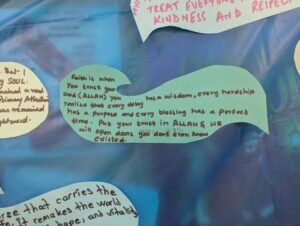 TREAT EVERYONE
KINDNESS AND RESPECT
that I
my SOUL.
Faith is when
you trust your
and (ALLAH) you has a wisdom, every hardship
realise that every delay
has a purpose and every blessing has a perfect
time. Put your trust in ALLAH & HE
will open doors you dont even know
existed.
that carries the
it remakes the world
hope, and vitality